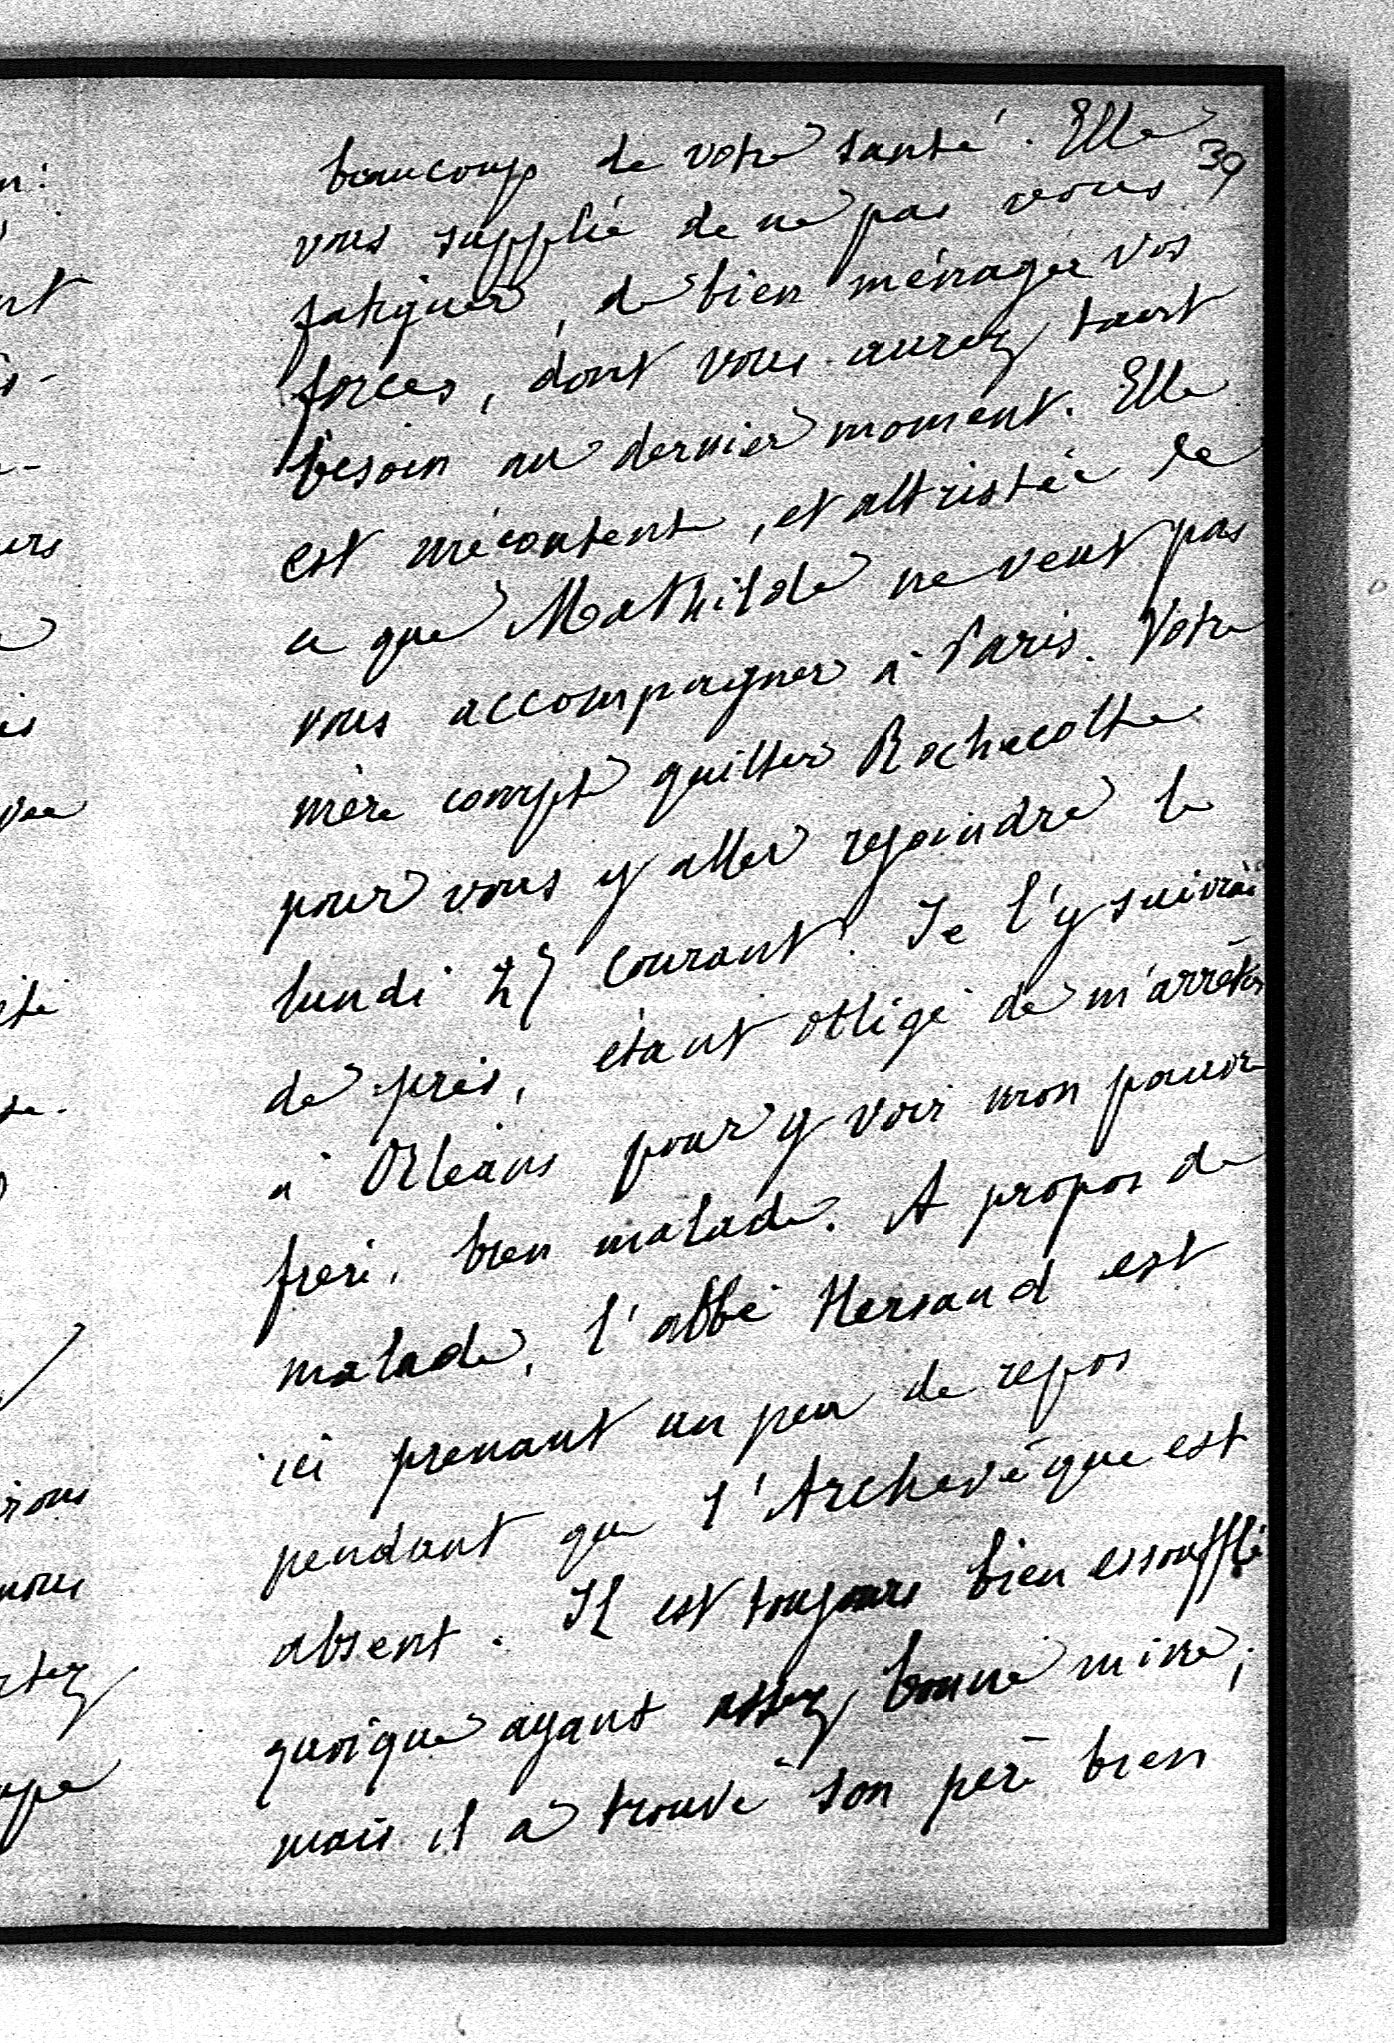 39
beaucoup de votre santé. Elle
vous supplie de ne pas vous
fatiguer, de bien ménager vos
forces, dont vous aurez tant
besoin au dernier moment. Elle
est mécontente, et attristée de
ce que Mathilde ne veut pas
vous accompagner à Paris. Votre
mère compte quitter Rochecotte
pour vous y aller rejoindre le
lundi 27 courant. Je l'y suivrai
de près, étant obligé de m'arrêter
à Orléans pour y voir mon pauvre
frère, bien malade. A propos de
malade, l'abbé Hersand est
ici prenant un peu de repos
pendant que l'Archevêque est
absent. Il est toujours bien essoufflé
quoique ayant assez bonne mine;
mais il a trouvé son père bien